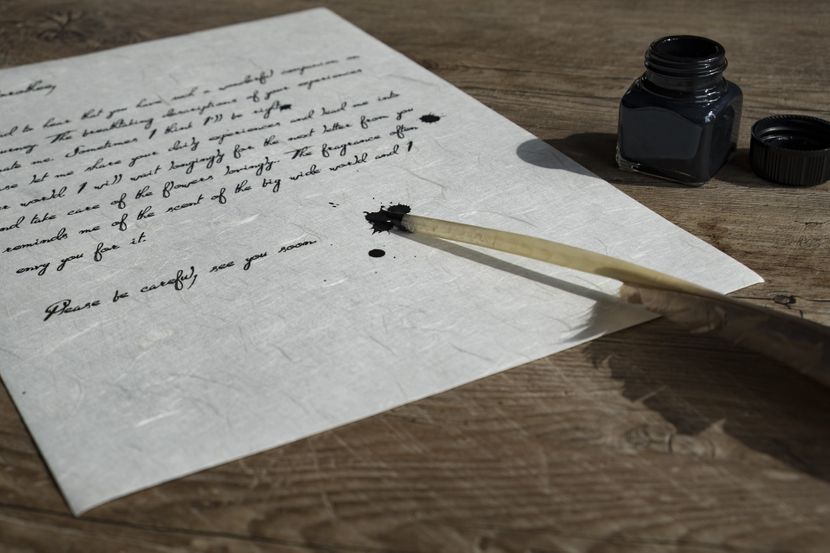 to hear that you have a wonderful companion on
The breathtaking descriptions of your experiences
me. Sometimes I think I'll be
let me share your daily experiences and lead me into
world I will wait longingly for the next letter from you
and take care of the flowers lovingly. The fragrance often
reminds me of the scent of the big wide world and I
envy you for it.
Please be careful, see you soon